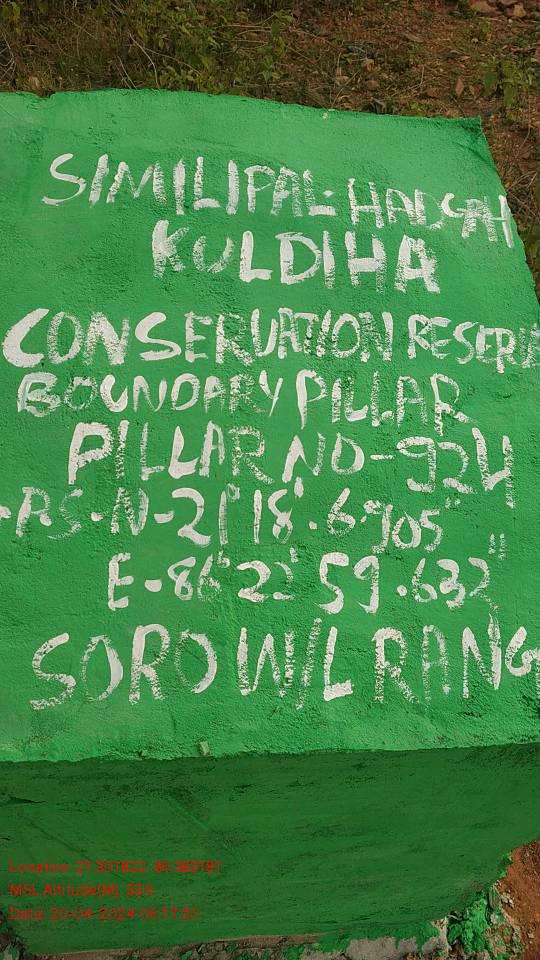 SIMILIPAL-HADGAH
KULDIHA
CONSERVATION RESERV
BOUNDARY PILLAR
PILLAR NO-924
PS-N-21°18'.6.905
E-86°22'59.632"
SORO W/L RANG
Location: 21.301822, 86.383191
MSL Altitude(M): 33.6
Data: 20-04-2024 06:17:20